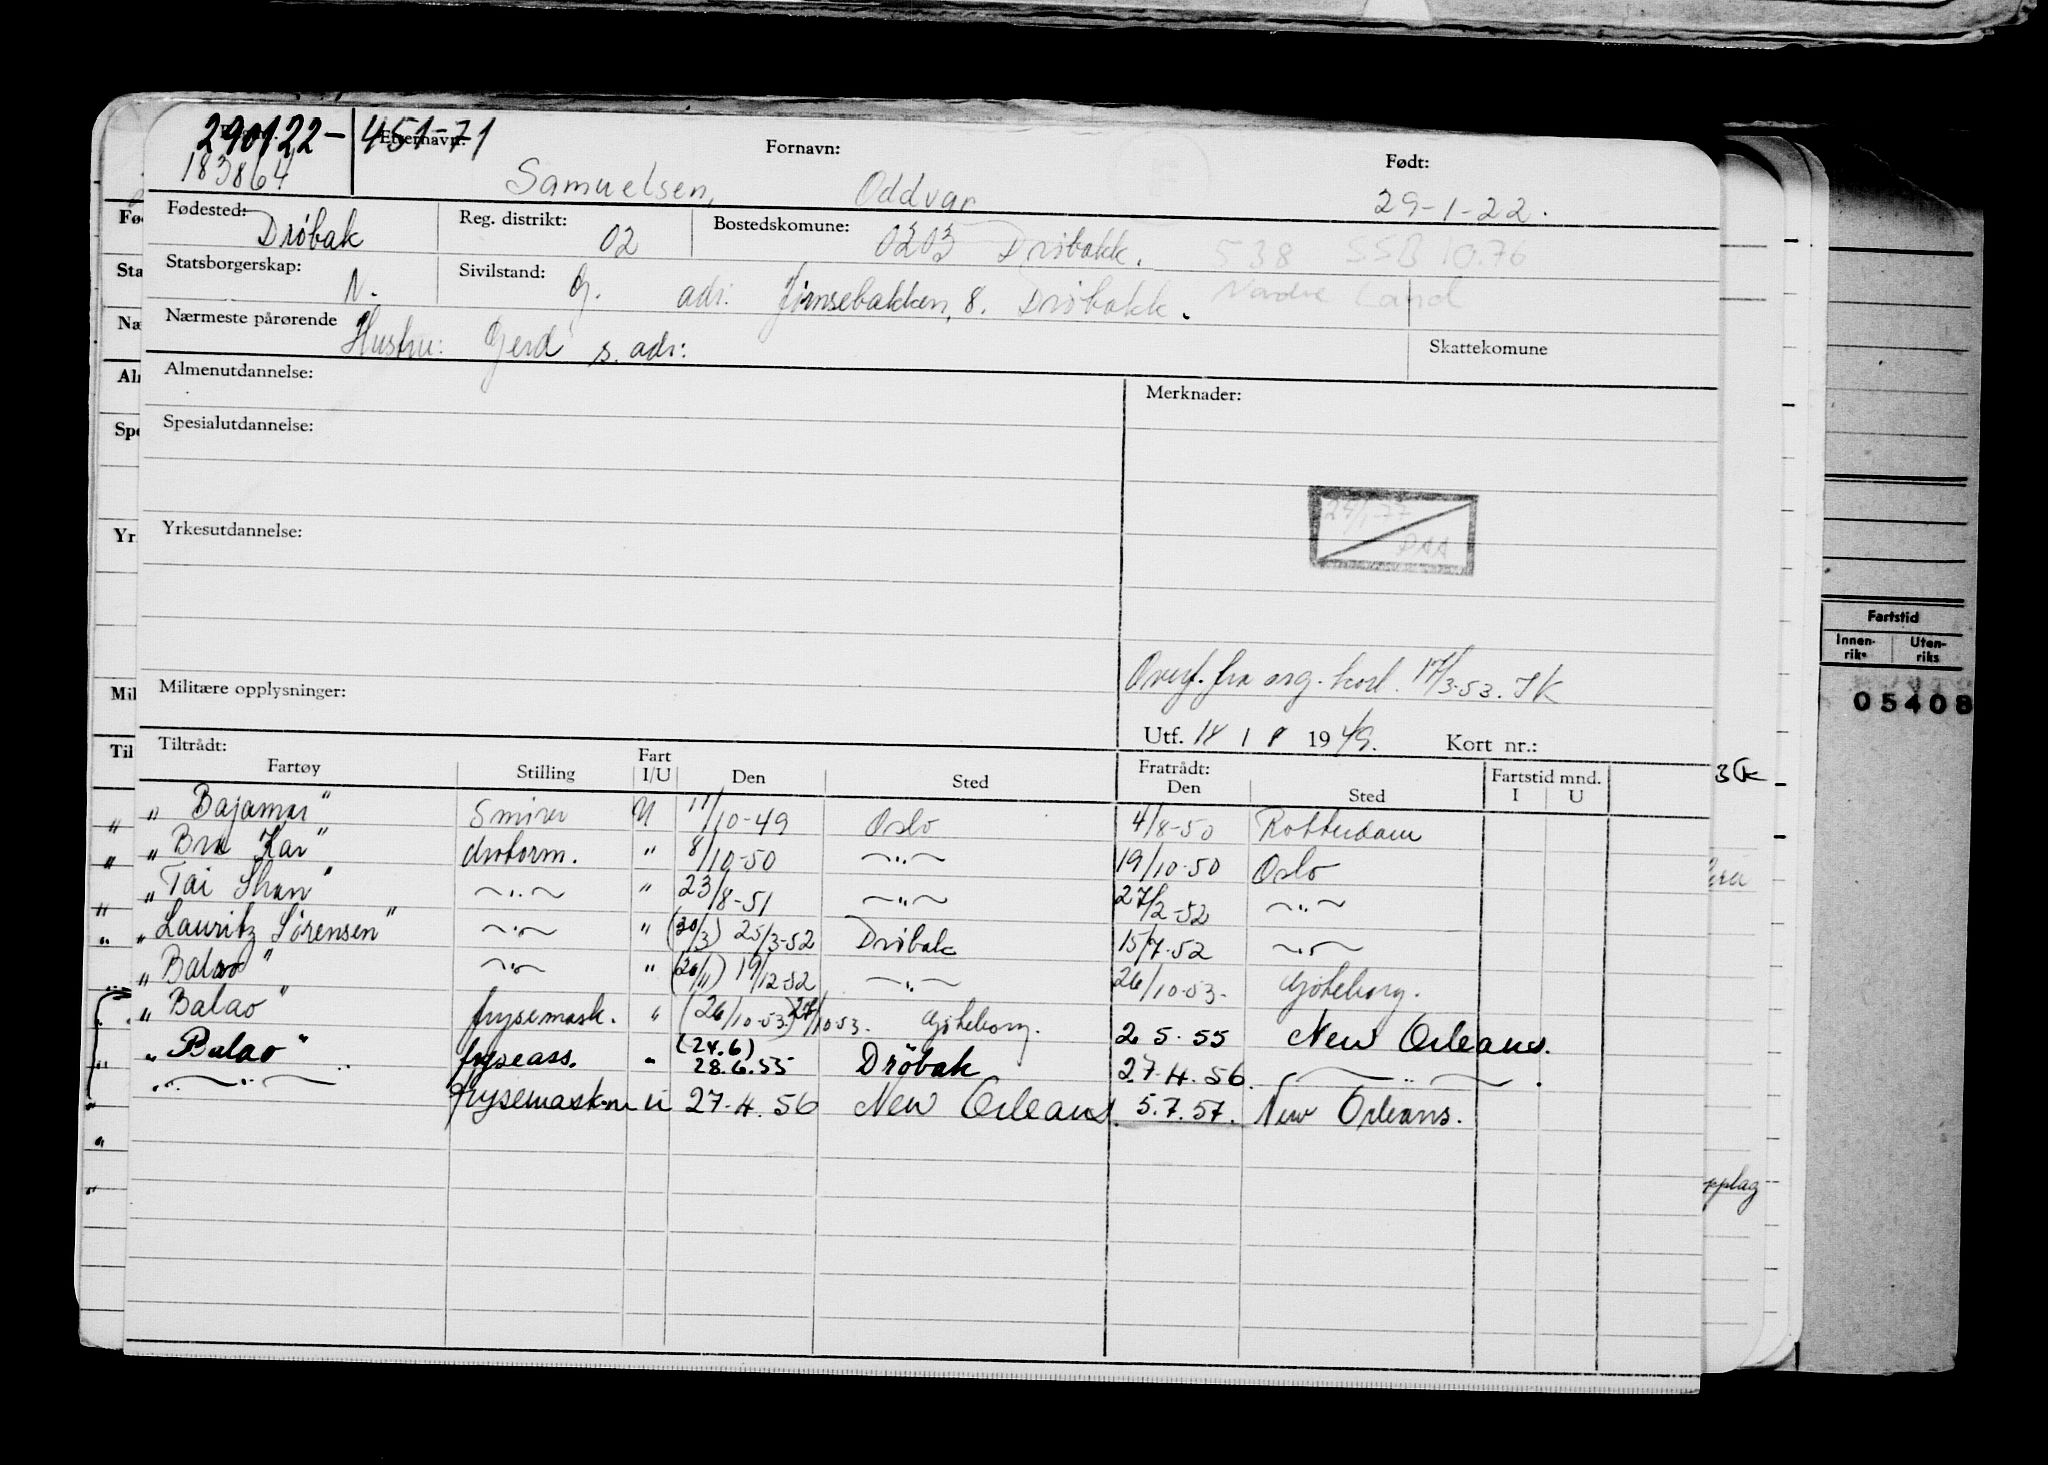 290122- 451-71
Etternavn: Fornavn: Født:
183864 Samuelsen, Oddvar 29-1-22.
Fødested: Drøbak Reg. distrikt: 02 Bostedskomune: 0203 Drøbakk. 538 SSB 10.76
Statsborgerskap: N. Sivilstand: G. adr. 8. Drøbakk. Nordre Land
Nærmeste pårørende Hustru: Gerd s. adr: Skattekomune
Almenutdannelse: Merknader:
Spesialutdannelse:
Yrkesutdannelse:
DAA
Militære opplysninger: Overf. fra org. kort. 17/3-53. JK
Utf. 18 / 8 1949. Kort nr.:
Tiltrådt: Fratrådt: Fartstid mnd.
Fartøy Stilling Fart I/U Den Sted Den Sted I U
„ Bajamar" Smører U 11/10-49 Oslo 4/8-50 Rotterdam
„ Bra Kar" motorm. " 8/10-50 — " — 19/10-50 Oslo
„ Tai Shan" — " — " 23/8-51 — " — 27/2-52 — " —
„ Lauritz Sørensen" — " — " (20/3) 25/3-52 Drøbak 15/7-52 — " —
„ Balao" — " — " (26/11) 19/12-52 — " — 26/10-53. Göteborg.
„ Balao" frysemask. " (26/10-53.) 27/10-53. Göteborg. 2 5. 55 New Orleans.
„ Balao" fryseass. " (24.6) 28.6.55 Drøbak 27.4.56. — " — .
— " — frysemask.m u 27.4.56 New Orleans. 5.7.57. New Orleans.
Fartstid
Innen-riks Uten-riks
05408
Fød
Sta
Næ
Alm
Spe
Yr
Mil
Til
3 JK
pplag